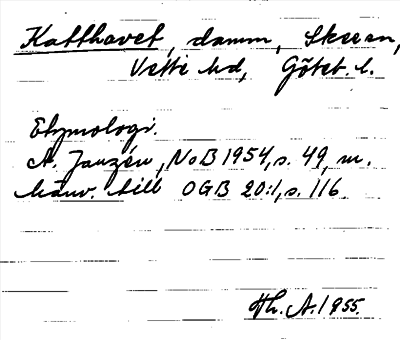 Katthavet, damm, Skeen,
Vette hd, Göteb. l.
Etymologi.
A. Janzén, NoB 1954, s. 49, m.
hänv. till OGB 20:1, s. 116
Th. A. 1955.